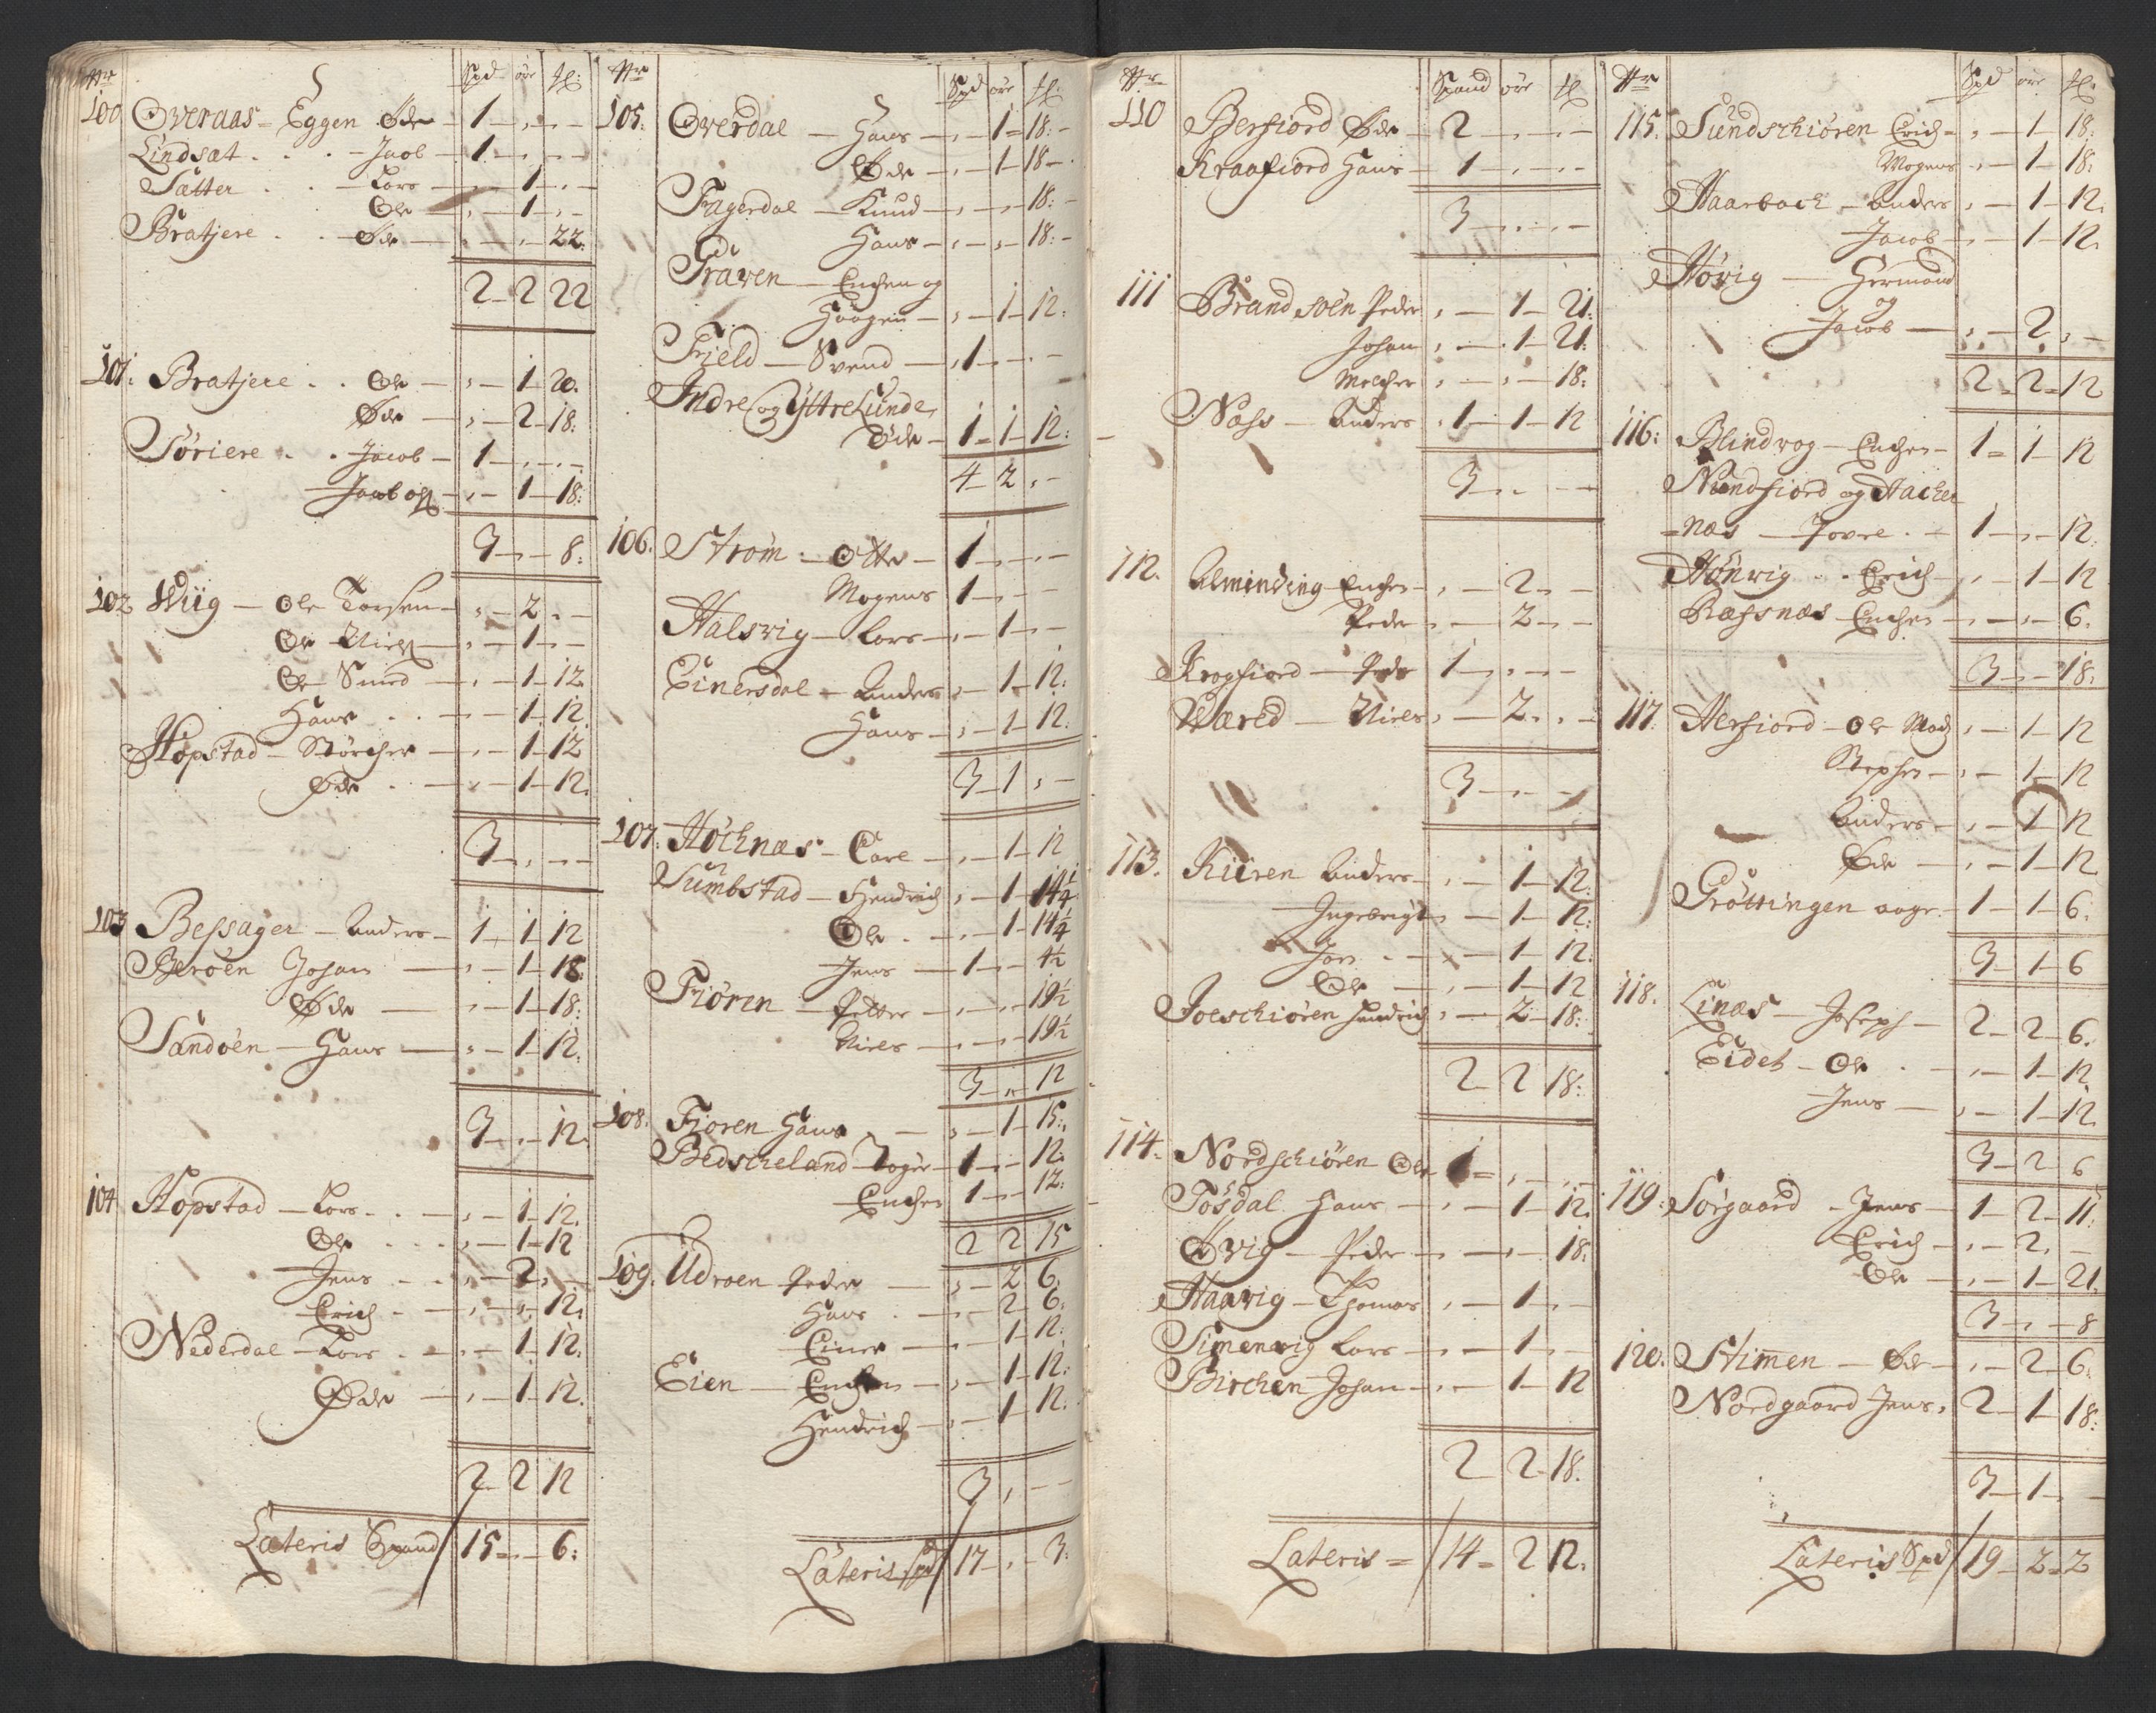 Nr Spd öre sl:
100 Overaas - Eggen Øde 1 - , - -
Lindsæt . . . - Jacob - 1 - , - -
Sætter . . - Lars - , - 1 - , -
Ole - , - 1 - , -
Bratjere . . - Øde - , - , - 22:
2 - 2 22
101: Bratjere . . Ole - , - 1 20.
Øde - , - 2 - 18:
Söriere . . Jacob - 1 - , - -
Jacob - , - 1 - 18:
3 - , - 8:
102 Wiig - Ole Larsen - , - 2 - , -
Ole Niels - , - 1 - , -
Ole Smed - , - 1 - 12
Hans . . - , - 1 - 12.
Hopstad - Störcher - , - 1 - 12
Øde . - , - 1 - 12.
3 - , - -
103 Bessager - Anders - 1 - 1 - 12
Beroen Johan - , - 1 - 18
Øde - , - 1 - 18:
Sandöen - Hans - , - 1 - 12:
3 - , - 12.
104 Hopstad - Lars . . - , - 1 - 12.
Ole . . . - , - 1 - 12
Jens - . - , - 2 , -
Erich . - , - , - 12.
Nederdal - Lars . - , - 1 - 12.
Øde - , - 1 - 12.
2 - 2 12
Lateris Spand 15 - , - 6:
Nr Spd öre sl.
105: Overdal - Hans - , - 1 - 18: -
Øde - , - 1 - 18 - .
Fagerdal - Knud - , - , - 18: -
Hans - , - , - 18: -
Graven - Enchen og
Haagen - , - 1 - 12:
Field - Svend - , 1 - , - -
Indre og Yttre Lunde,
Øde - 1 - 1 - 12:
4 - 2 , -
106. Ström - Otte - 1 - , - -
Mogens 1 - , - -
Halsvig - Lars - , - 1 - , -
Einersdal - Anders , - 1 - 12:
Hans - , - 1 - 12.
3 - 1 , -
107. Höchnæs - Carl - , - 1 - 12
Sumbstad - Hendrich , - 1 - 14¼
Ole . - , - 1 - 14¼
Jens - 1 - , - 4½
Fiören - Petter - , - , - 19½
Niels - , - , - 19½
3 - , - 12
108. Fjoren Hans - , - 1 - 15:
Bedscheland Roger 1 - , - 12.
Enchen 1 - , - 12:
2 2 15
109. Udroen Peder - , - 2 6.
Hans . - , - 2 - 6.
Einer - , - 1 - 12:
Eien - Enchen - , - 1 - 12:
Hendrich - , - 1 - 12.
3 , - -
Lateris Spd 17 - , - 3:
Nr Spand öre sl
110 Berfiord Øde - 2 - , - -
Kraafiord Hans - 1 - , - -
3 - , - -
111 Brandsöen Peder , - 1 - 21.
Johan , - 1 - 21:
Melcher , - , - 18:
Næss - Anders , 1 - 1 - 12
3 - , - -
112. Alminding Enchen - , - 2 - , -
Peder , - 2 - , -
Krogfiord - Peder 1 - , - -
Wæred - Niels , - 2 - , -
3 - , - -
113. Kiiren Anders - , - 1 - 12.
Ingebrigt , - 1 - 12:
Jon . - , - 1 - 12.
Ole - , - 1 - 12
Joeschiören Hendrich , - 2 - 18:
2 - 2 18:
114. Nordschiören Ole 1 - , - -
Tösdal Hans - , - 1 - 12.
Øvig - Peder - , - , - 18:
Haavig - Thomas , - 1 - , -
Simenvig Lars - , - 1 - , -
Birchen Johan - , - 1 - 12
2 - 2 - 18.
Lateris = 14 = 2 12.
Nr Spd öre sl.
115. Sundschiören Erich - , - 1 - 18:
Mogens , - 1 - 18:
Haarbach - Anders , - 1 - 12.
Jacob - , - 1 - 12.
Hövig - Hermand
og
Jacob - , - 2 , -
2 - 2 - 12
116: Blindvog - Enchen - 1 - 1 - 12
Nundfiord og Hacken
=næs - Povel . - 1 - , - 12.
Hönvig . . Erich - , - 1 - 12
Ræssnæs - Enchen - , - , - 6.
3 - , - 18.
117. Herfiord - Ole Mads , - 1 - 12
Stephen - , - 1 - 12
Anders - , - 1 - 12
Øde - , - 1 - 12
Gröttingen aage - 1 - 1 - 6.
3 - 1 - 6
118. Linæs - Joseph - 2 - 2 - 6.
Eidet - Ole . - , - 1 - 12
Jens - , - 1 - 12
3 - 2 6
119. Sörgaard - Jens - 1 - 2 - 11.
Erich - , - 2 , -
Ole - , - 1 - 21.
3 - , - 8
120. Stimen - Øde - , - 2 - 6.
Nordgaard Jens , 2 - 1 - 18:
3 - 1 - , -
Lateris Spd 19 - 2 - 2